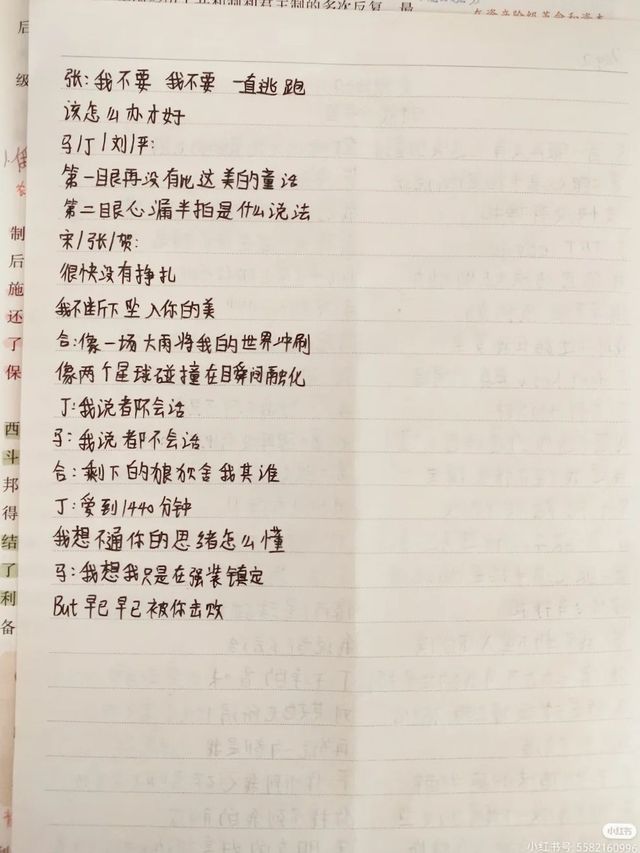 后
级
制
后
施
还
了
保
西
斗
邦
得
结
了
利
备
张:我不要 我不要 一直逃跑
该怎么办才好
马/丁/刘/严:
第一眼再没有比这美的童话
第二眼心漏半拍是什么说法
宋/张/贺:
很快没有挣扎
我不断下坠入你的美
合:像一场大雨将我的世界冲刷
像两个星球碰撞在瞬间融化
丁:我说都不会话
马:我说都不会话
合:剩下的狼狈舍我其谁
丁:爱到1440分钟
我想不通你的思绪怎么懂
马:我想我只是在强装镇定
But早已早已被你击败
小红书
小红书号:5582160996